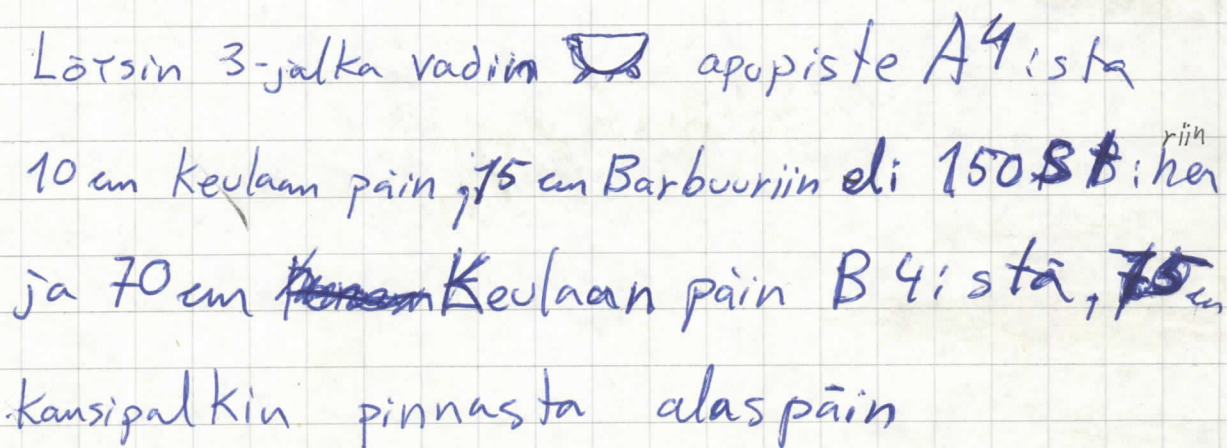 Löysin 3-jalka vadin apupiste A4:ista
10 cm keulaan päin, 15 cm Barbuuriin eli 150 B:hen riin
ja 70 cm Keulaan päin B 4:istä, 75 cm
kansipalkin pinnasta alaspäin